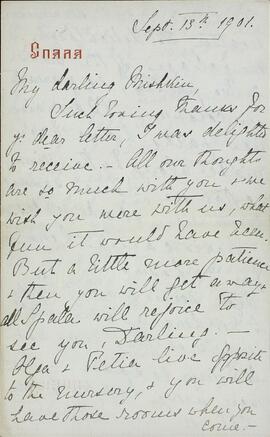 Sept. 13th 1901.
СПАЛА
My darling Mishkin,
Such loving thanks for
yr dear letter, I was delighted
to receive. – All our thoughts
are so much with you & we
wish you were with us, what
fun it would have been.
But a little more patience
& then you will get away &
all Spala will rejoice to
see you, Darling. –
Olga & Petia live opposite
to the nursery, & you will
have those rooms when you
come. –